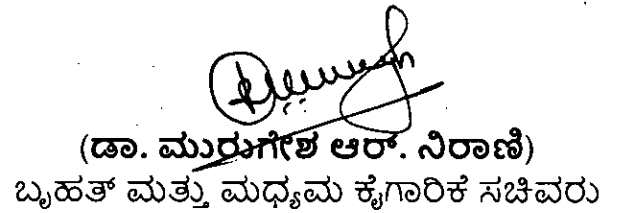 (ಡಾ. ಮುರುಗೇಶ ಆರ್. ನಿರಾಣಿ)
ಬೃಹತ್ ಮತ್ತು ಮಧ್ಯಮ ಕೈಗಾರಿಕೆ ಸಚಿವರು